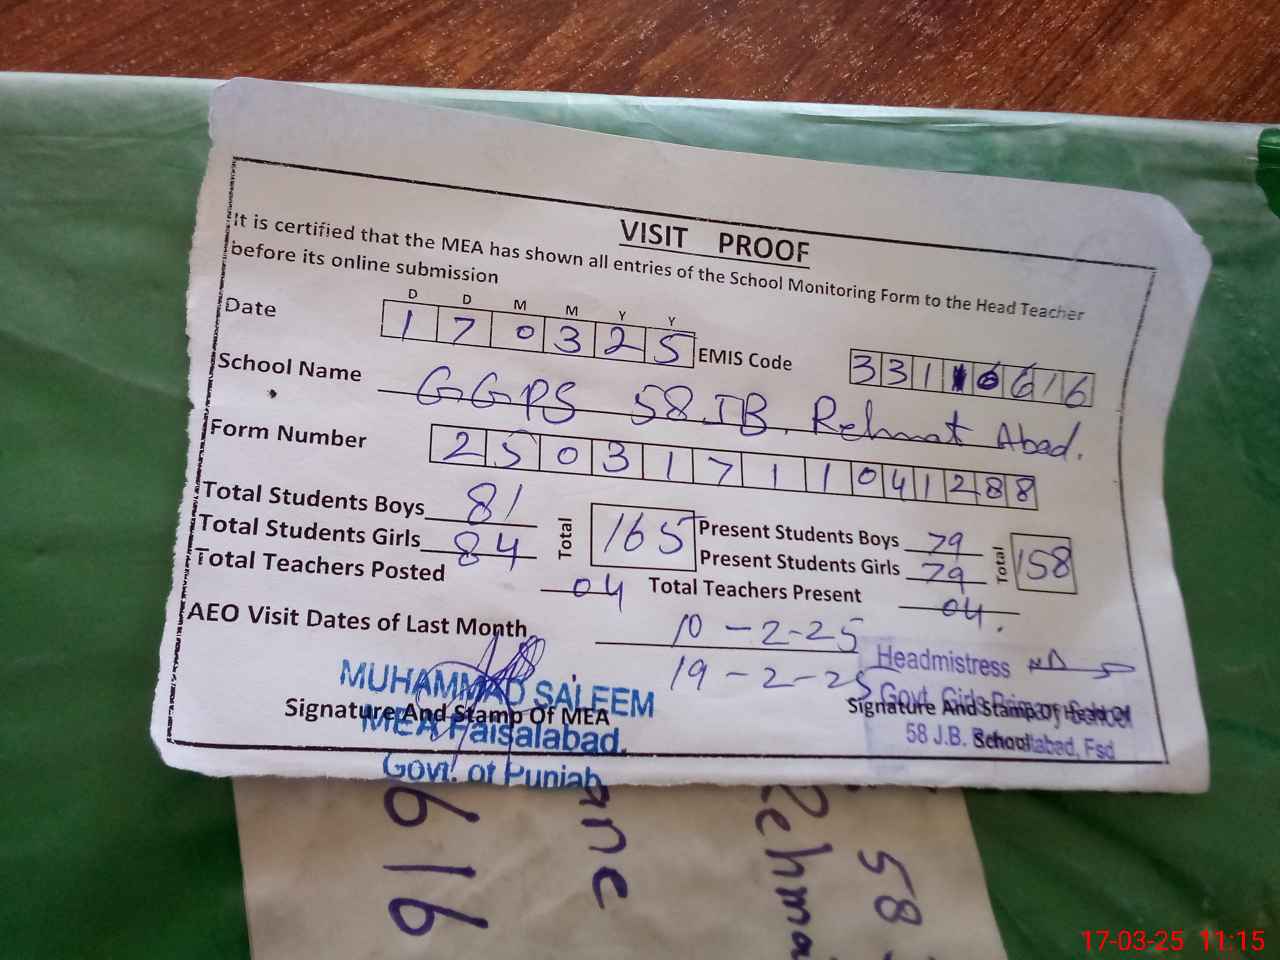 VISIT PROOF
It is certified that the MEA has shown all entries of the School Monitoring Form to the Head Teacher
before its online submission
D D M M Y Y
Date 1 7 0 3 2 5 EMIS Code 3 3 1 1 0 6 1 6
School Name GGPS 58 JB. Rehmat Abad.
Form Number 2 5 0 3 1 7 1 1 0 4 1 2 8 8
Total Students Boys 81 Total 165 Present Students Boys 79 Total 158
Total Students Girls 84 Present Students Girls 79
Total Teachers Posted 04 Total Teachers Present 04.
AEO Visit Dates of Last Month 10-2-25
19-2-25
MUHAMMAD SALEEM
MEA Faisalabad.
Govt. of Punjab
Signature And Stamp Of MEA
Headmistress
Govt. Girls Primary School
58 J.B. abad, Fsd
Signature And Stamp Of Head Of
School
616
58
17-03-25 11:15